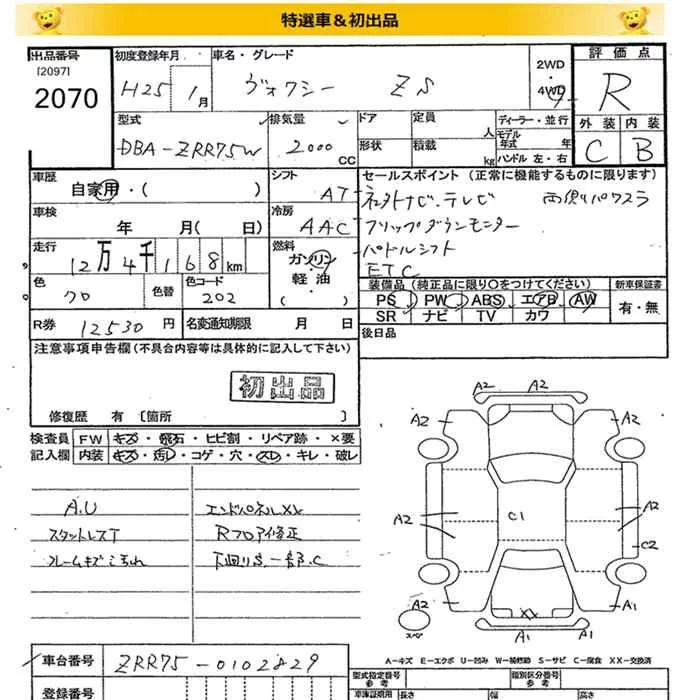 特選車&初出品
出品番号
[2097]
2070
初度登録年月
H25年 1月
車名・グレード
ヴォクシー ZS
2WD
・
4WD
評価点
R
外装 内装
C B
型式
DBA-ZRR75W
排気量
2000 CC
ドア
形状
定員 人
積載 kg
ディーラー・並行
モデル
年式 年
ハンドル 左・右
車歴
自家用・( )
シフト
AT
車検
年 月( 日)
冷房
AAC
走行
12万4千168km
燃料
ガソリン
軽油
色
クロ
色替
色コード
202
R券 12530円
名変通知期限 月 日
セールスポイント(正常に機能するものに限ります)
・ネットナビ.テレビ 両側パワスラ
・フリップダウンモニター
・パドルシフト
ETC
装備品(純正品に限り○をつけてください)
PS PW ABS エアB AW
SR ナビ TV カワ
新車保証書
有・無
後日品
注意事項申告欄(不具合内容等は具体的に記入して下さい)
初出品
修復歴 有 [箇所 ]
検査員
記入欄
FW キズ・飛石・ヒビ割・リペア跡・×要
内装 キズ・汚レ・コゲ・穴・スレ・キレ・破レ
A.U
スタットレスT
フレームキズこすれ
エンドパネルXX
Rフロア修正
下廻りS.一部.C
A2 A2
A2 A2
A2 C1 A2
C2
A2 A1
XX
A1 A1
スペア
A-キズ E-エクボ U-凹み W-補修跡 S-サビ C-腐食 XX-交換済
車台番号
ZRR75-0102829
登録番号
型式指定番号
参考
類別区分番号
参考
車庫証明用
長さ 幅 高さ